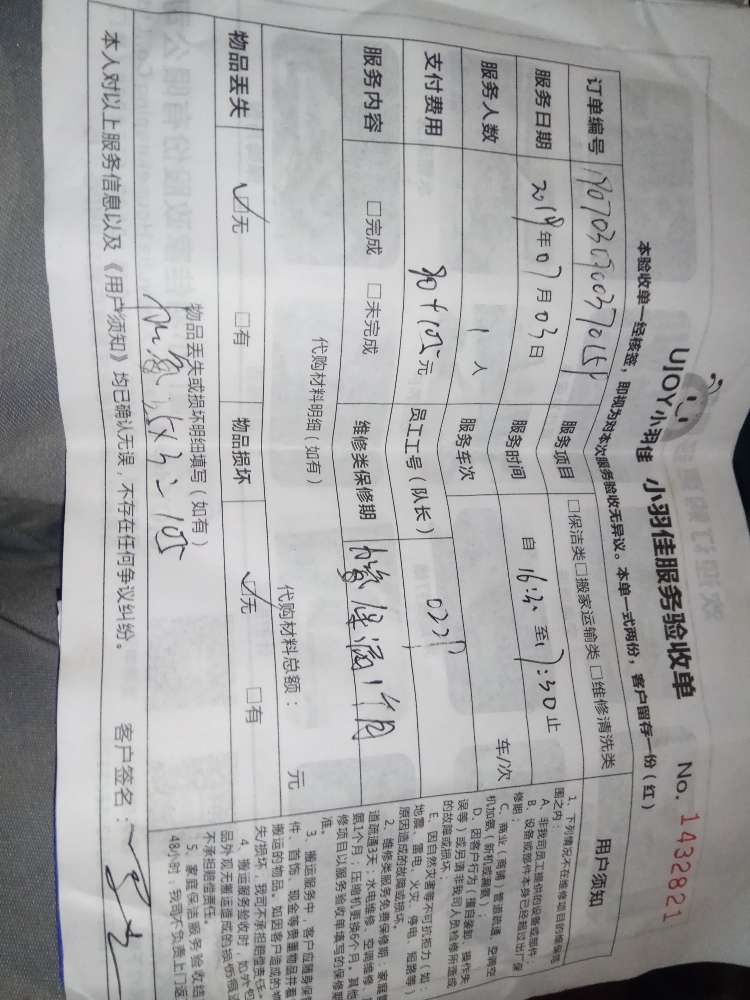 UJOY小羽佳 小羽佳服务验收单 No. 1432821
本验收单一经核签，即视为对本次服务验收无异议。本单一式两份，客户留存一份（红）
订单编号 服务项目 □保洁类□搬家运输类 □维修清洗类
服务日期 2019年07月03日 服务时间 自16:30至17:30止
服务人数 1人 服务车次 车/次
支付费用 元 员工工号（队长）
服务内容 □完成 □未完成 维修类保修期 加氟保满1个月
代购材料明细（如有） 代购材料总额： 元
物品丢失 ☑无 □有 物品损坏 ☑无 □有
物品丢失或损坏明细填写（如有）
本人对以上服务信息以及《用户须知》均已确认无误，不存在任何争议纠纷。 客户签名：
用户须知
1、下列情况不在维修项目的维保范
围之内：
A、非我司员工提供的设备或部件；
B、设备或部件本身已经超过出厂保
修期；
C、商业（商铺）管道疏通、空调空
机加氨（新机或漏氨）；
D、因客户行为（擅自装卸、操作失
误等）或另请非我司人员检修所造成
的故障或损坏；
E、因自然灾害等不可抗拒力（如：
地震、雷电、火灾、停电、短路等）
原因造成的故障或损坏。
2、维修类服务免费保修期：家庭管
道疏通3天；水电维修、空调维修、
氨1个月；压缩机更换6个月。其他
修项目以服务验收单填写的保修期
准。
3、搬运服务中，客户应随身保
件、首饰、现金等贵重物品并看
搬运的物品。如因客户造成的物
失损坏，我司不承担赔偿责任。
4、搬运服务验收时，如外包
品外观无搬运造成的损伤痕迹
不承担赔偿责任。
5、家庭保洁服务验收结
48小时，我司不负责上门返